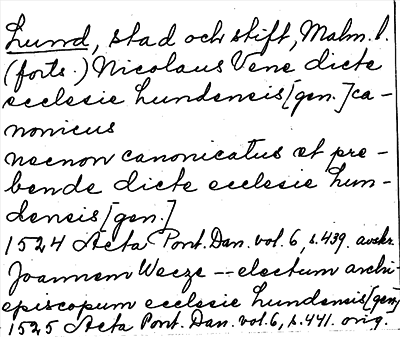 Lund, stad och stift, Malm. l.
(forts.) Nicolaus Vene dicte
ecclesie Lundensis [gen.] ca-
nonicus
necnon canonicatus et pre-
bende dicte ecclesie Lun-
densis [gen.]
1524 Acta Pont. Dan. vol. 6, s. 439. avskr.
Joannem Weeze -- electum archi-
episcopum ecclesie Lundensis [gen.]
1525 Acta Pont. Dan. vol. 6, s. 441. orig.